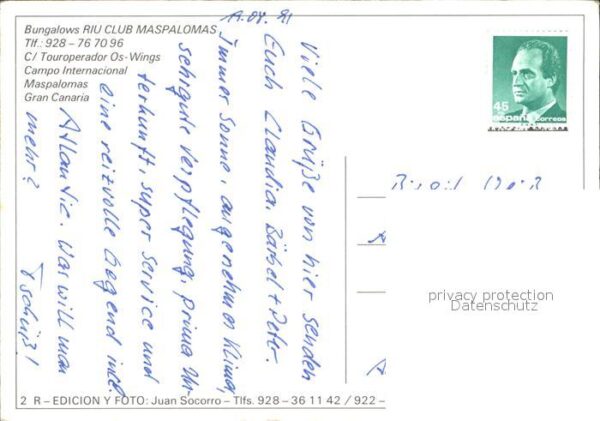 Bungalows RIU CLUB MASPALOMAS
Tlf.: 928 - 76 70 96
C/ Touroperador Os-Wings
Campo Internacional
Maspalomas
Gran Canaria
Viele Grüße von hier senden
Euch Claudia, Bärbel + Peter.
Immer Sonne, angenehmes Klima,
schigute Verpflegung, prima Un-
terkunft, super Service und
eine reizvolle Gegend incl.
Atlantic. Was will man
mehr?
Tschüß!
45
españa correos
privacy protection
Datenschutz
2 R – EDICION Y FOTO: Juan Socorro – Tlfs. 928 – 36 11 42 / 922 –